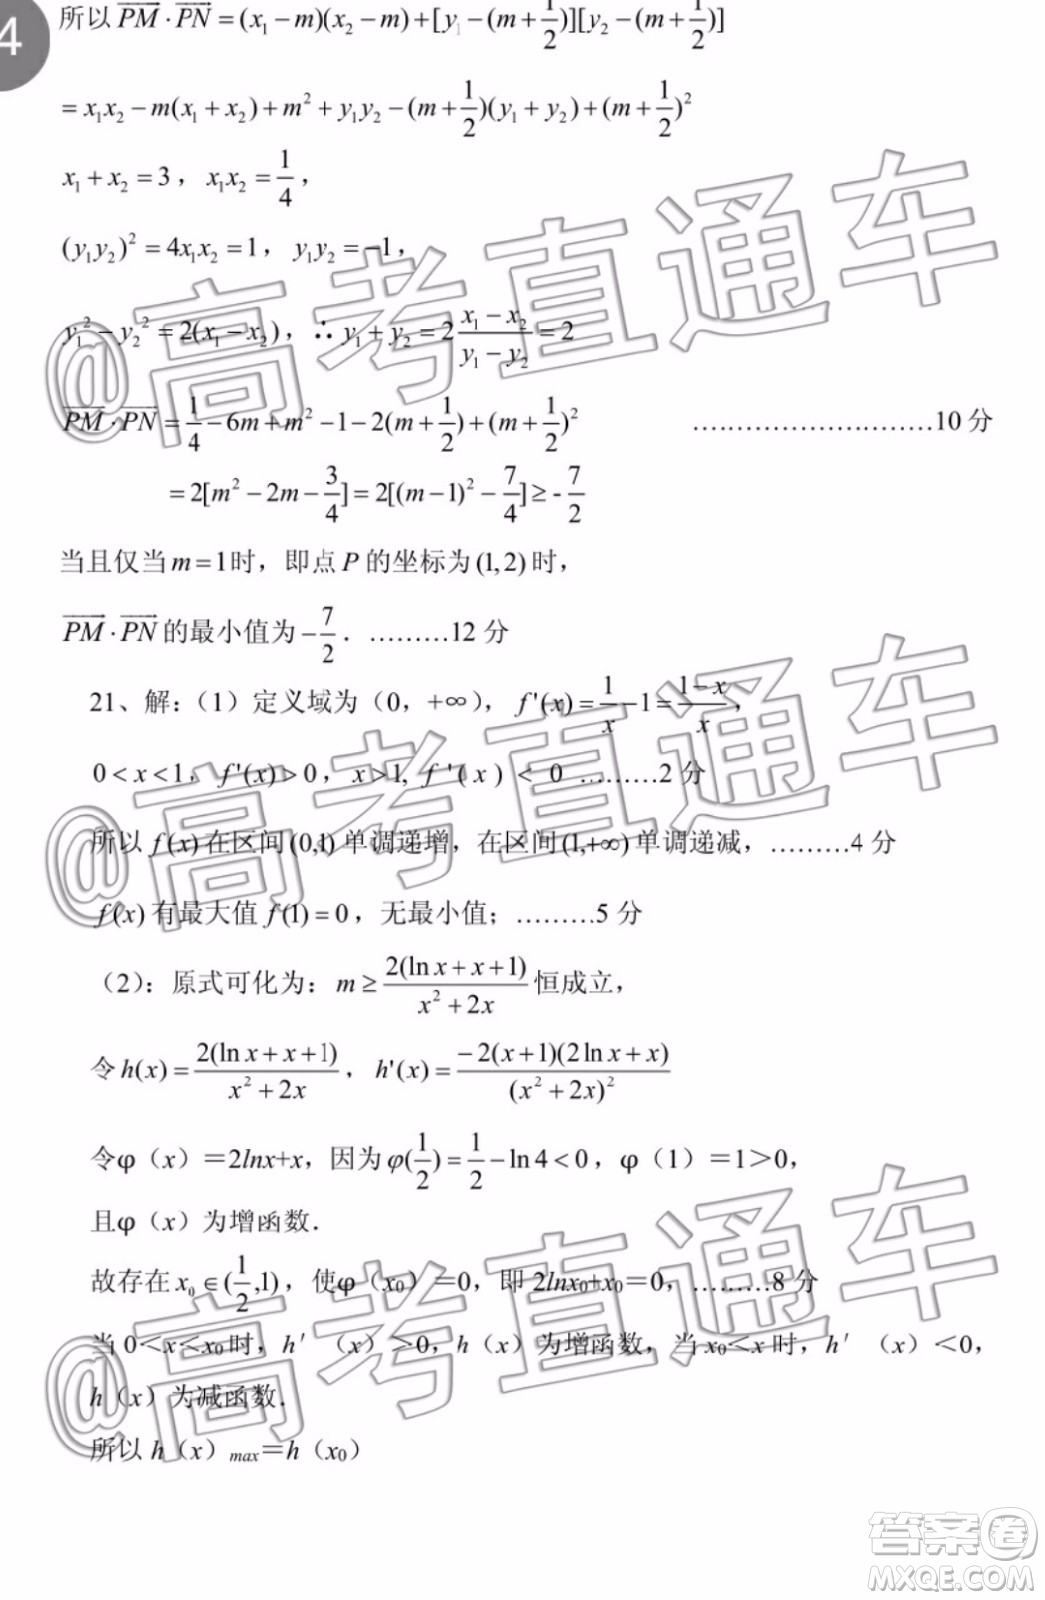 4
所以 PM·PN = (x₁−m)(x₂−m)+[y₁−(m+1/2)][y₂−(m+1/2)]
= x₁x₂−m(x₁+x₂)+m²+y₁y₂−(m+1/2)(y₁+y₂)+(m+1/2)²
x₁+x₂=3，x₁x₂=1/4，
(y₁y₂)²=4x₁x₂=1，y₁y₂=−1，
y₁²−y₂²=2(x₁−x₂)，∴y₁+y₂=2(x₁−x₂)/(y₁−y₂)=2
PM·PN=1/4−6m+m²−1−2(m+1/2)+(m+1/2)² ………………………10 分
=2[m²−2m−3/4]=2[(m−1)²−7/4]≥-7/2
当且仅当m=1时，即点 P 的坐标为(1,2)时，
PM·PN的最小值为−7/2．………12 分
21、解：（1）定义域为（0，+∞），f'(x)=1/x−1=(1−x)/x，
0<x<1，f'(x)>0，x>1, f'(x)<0 ………2 分
所以 f(x)在区间(0,1)单调递增，在区间(1,+∞)单调递减，………4 分
f(x)有最大值 f(1)=0，无最小值；………5 分
（2）：原式可化为：m≥2(ln x+x+1)/(x²+2x)恒成立，
令h(x)=2(ln x+x+1)/(x²+2x)，h'(x)=−2(x+1)(2ln x+x)/(x²+2x)²
令φ（x）＝2lnx+x，因为φ(1/2)=1/2−ln4<0，φ（1）＝1＞0，
且φ（x）为增函数．
故存在x₀∈(1/2,1)，使φ（x₀）＝0，即 2lnx₀+x₀＝0，………8 分
当 0＜x≤x₀时，h′（x）＞0，h（x）为增函数，当 x₀＜x 时，h′（x）＜0，
h（x）为减函数．
所以 h（x）max＝h（x₀）
@高考直通车
@高考直通车
@高考直通车
答案卷
MXQE.COM